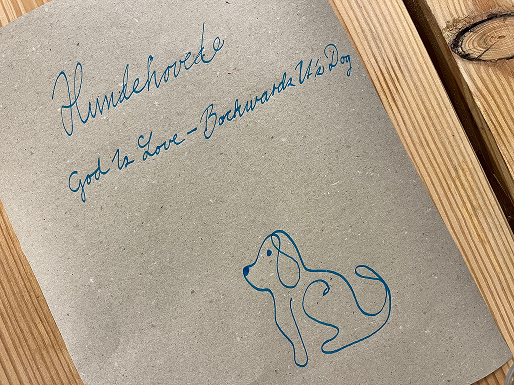 Hundehovede
God Is Love – Backwards It's Dog